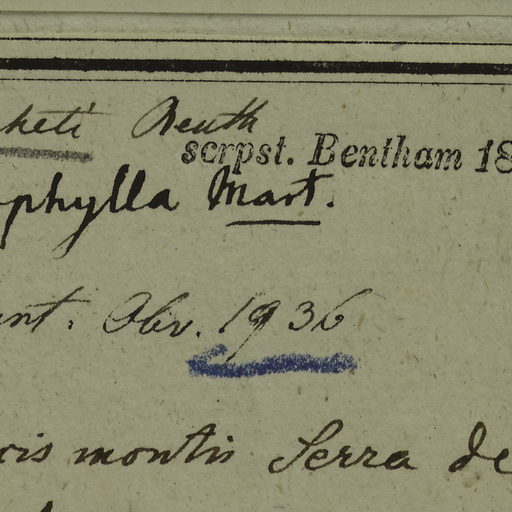 keti Benth
scrpst. Bentham 18
phylla Mart.
nt. Obs. 1936
cis montis Serra de